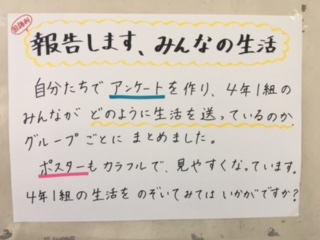 報告します、みんなの生活
自分たちで アンケートを作り、4年1組の
みんなが どのように生活を送っているのか
グループごとに まとめました。
ポスターもカラフルで、見やすくなっています。
4年1組の生活を のぞいてみては いかがですか?